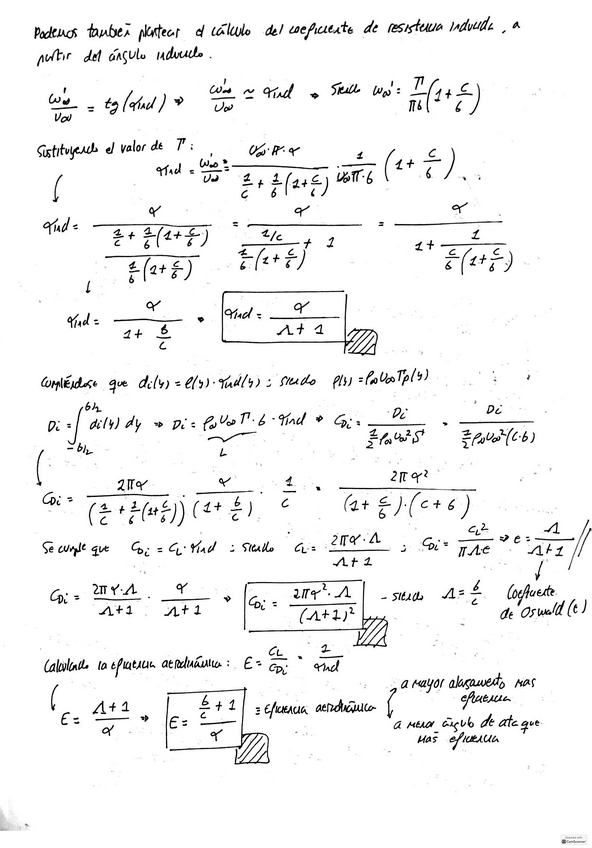 Podemos también plantear el cálculo del coeficiente de resistencia inducida, a
partir del ángulo inducido.
ω'∞/U∞ = tg(αind) ⇒ ω'∞/U∞ ≃ αind ⇒ siendo ω∞' = Γ/(Πb) (1 + c/b)
Sustituyendo el valor de Γ:
αind = ω'∞/U∞ = (U∞·Π·α)/(1/c + 1/b(1 + c/b)) · 1/(U∞Π·b) (1 + c/b)
αind = α/((1/c + 1/b(1 + c/b))/(1/b(1 + c/b))) = α/((1/c)/(1/b(1 + c/b)) + 1) = α/(1 + 1/(c/b(1 + c/b)))
αind = α/(1 + b/c) ⇒ αind = α/(Λ + 1)
Cumpliéndose que di(y) = l(y)·αind(y); siendo l(y) = ρ∞U∞Γp(y)
Di = ∫ -b/2 b/2 di(y) dy ⇒ Di = ρ∞U∞Γ·b·αind ⇒ CDi = Di/(½ρ∞U∞²S) = Di/(½ρ∞U∞²(c·b))
L
CDi = 2Πα/(1/c + 1/b(1 + c/b)) · α/(1 + b/c) · 1/c = 2Πα²/((1 + c/b)·(c + b))
Se cumple que CDi = CL·αind; siendo CL = 2Πα·Λ/(Λ + 1); CDi = CL²/(ΠΛ·e) ⇒ e = Λ/(Λ + 1) //
CDi = 2Πα·Λ/(Λ + 1) · α/(Λ + 1) ⇒ CDi = 2Πα²·Λ/(Λ + 1)² - siendo Λ = b/c
Coeficiente
de Oswald (e)
Calculando la eficiencia aerodinámica: E = CL/CDi = 1/αind
E = (Λ + 1)/α ⇒ E = (b/c + 1)/α ≡ Eficiencia aerodinámica
a mayor alargamiento mas
eficiencia
a menor ángulo de ataque
mas eficiencia
CamScanner